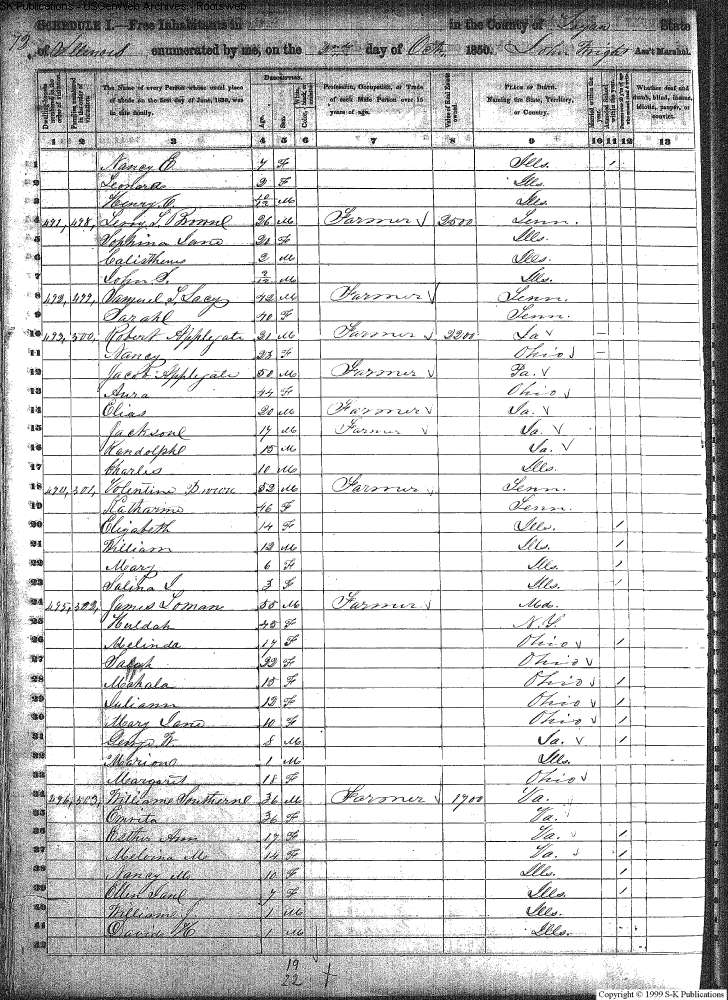 S-K Publications - USGenWeb Archives - Rootsweb
SCHEDULE I.—Free Inhabitants in in the County of State
of Illinois enumerated by me, on the day of Oct. 1850. John Wright Ass't Marshal.
Dwelling-houses numbered in the order of visitation.
Families numbered in the order of visitation.
The Name of every Person whose usual place of abode on the first day of June, 1850, was in this family.
Description.
Age.
Sex.
Color, White, black, or mulatto.
Profession, Occupation, or Trade of each Male Person over 15 years of age.
Value of Real Estate owned.
Place of Birth. Naming the State, Territory, or Country.
Married within the year.
Attended School within the year.
Persons over 20 y'rs of age who cannot read & write.
Whether deaf and dumb, blind, insane, idiotic, pauper, or convict.
1 2 3 4 5 6 7 8 9 10 11 12 13
1 Nancy E. 7 F Ills. /
2 Leonora 2 F Ills.
3 Henry C. M Ills.
4 491, 498, Leroy L. Browne 26 M Farmer 2500 Tenn.
5 Sophina Jane 21 F Ills.
6 Calisthenes 2 M Ills.
7 John S. M Ills.
8 492, 499, Samuel S. Lacy 42 M Farmer Tenn.
9 Sarah 40 F Tenn.
10 493, 500, Robert Applegate 21 M Farmer 2200 Ia
11 Nancy 23 F Ohio
12 Jacob Applegate 50 M Farmer Pa.
13 Anra 44 F Ohio
14 Elias 20 M Farmer Ia.
15 Jackson 17 M Farmer Ia.
16 Randolph 15 M Ia.
17 Charles 10 M Ills.
18 494, 501, Volentine 52 M Farmer Tenn.
19 Katharine 46 F Tenn.
20 Elizabeth 14 F Ills. /
21 William 12 M Ills. /
22 Mary 6 F Ills. /
23 Salina J 3 F Ills. /
24 495, 502, James Loman 55 M Farmer Md.
25 Huldah 45 F N.Y.
26 Melinda 17 F Ohio /
27 Sarah 22 F Ohio
28 Mahala 15 F Ohio /
29 Juliann 12 F Ohio /
30 Mary Jane 10 F Ohio /
31 George W. 8 M Ia. /
32 Marion 1 M Ills.
33 Margaret 18 F Ohio
34 496, 503, William Southerne 36 M Farmer 1700 Va.
35 36 F Va.
36 Esther Ann 17 F Va. /
37 Melvina M. 14 F Va. /
38 Nancy M. 10 F Ills. /
39 Ellen Jane 7 F Ills. /
40 William J. 1 M Ills.
41 David H 1 M Ills.
42
19
22
Copyright © 1999 S-K Publications